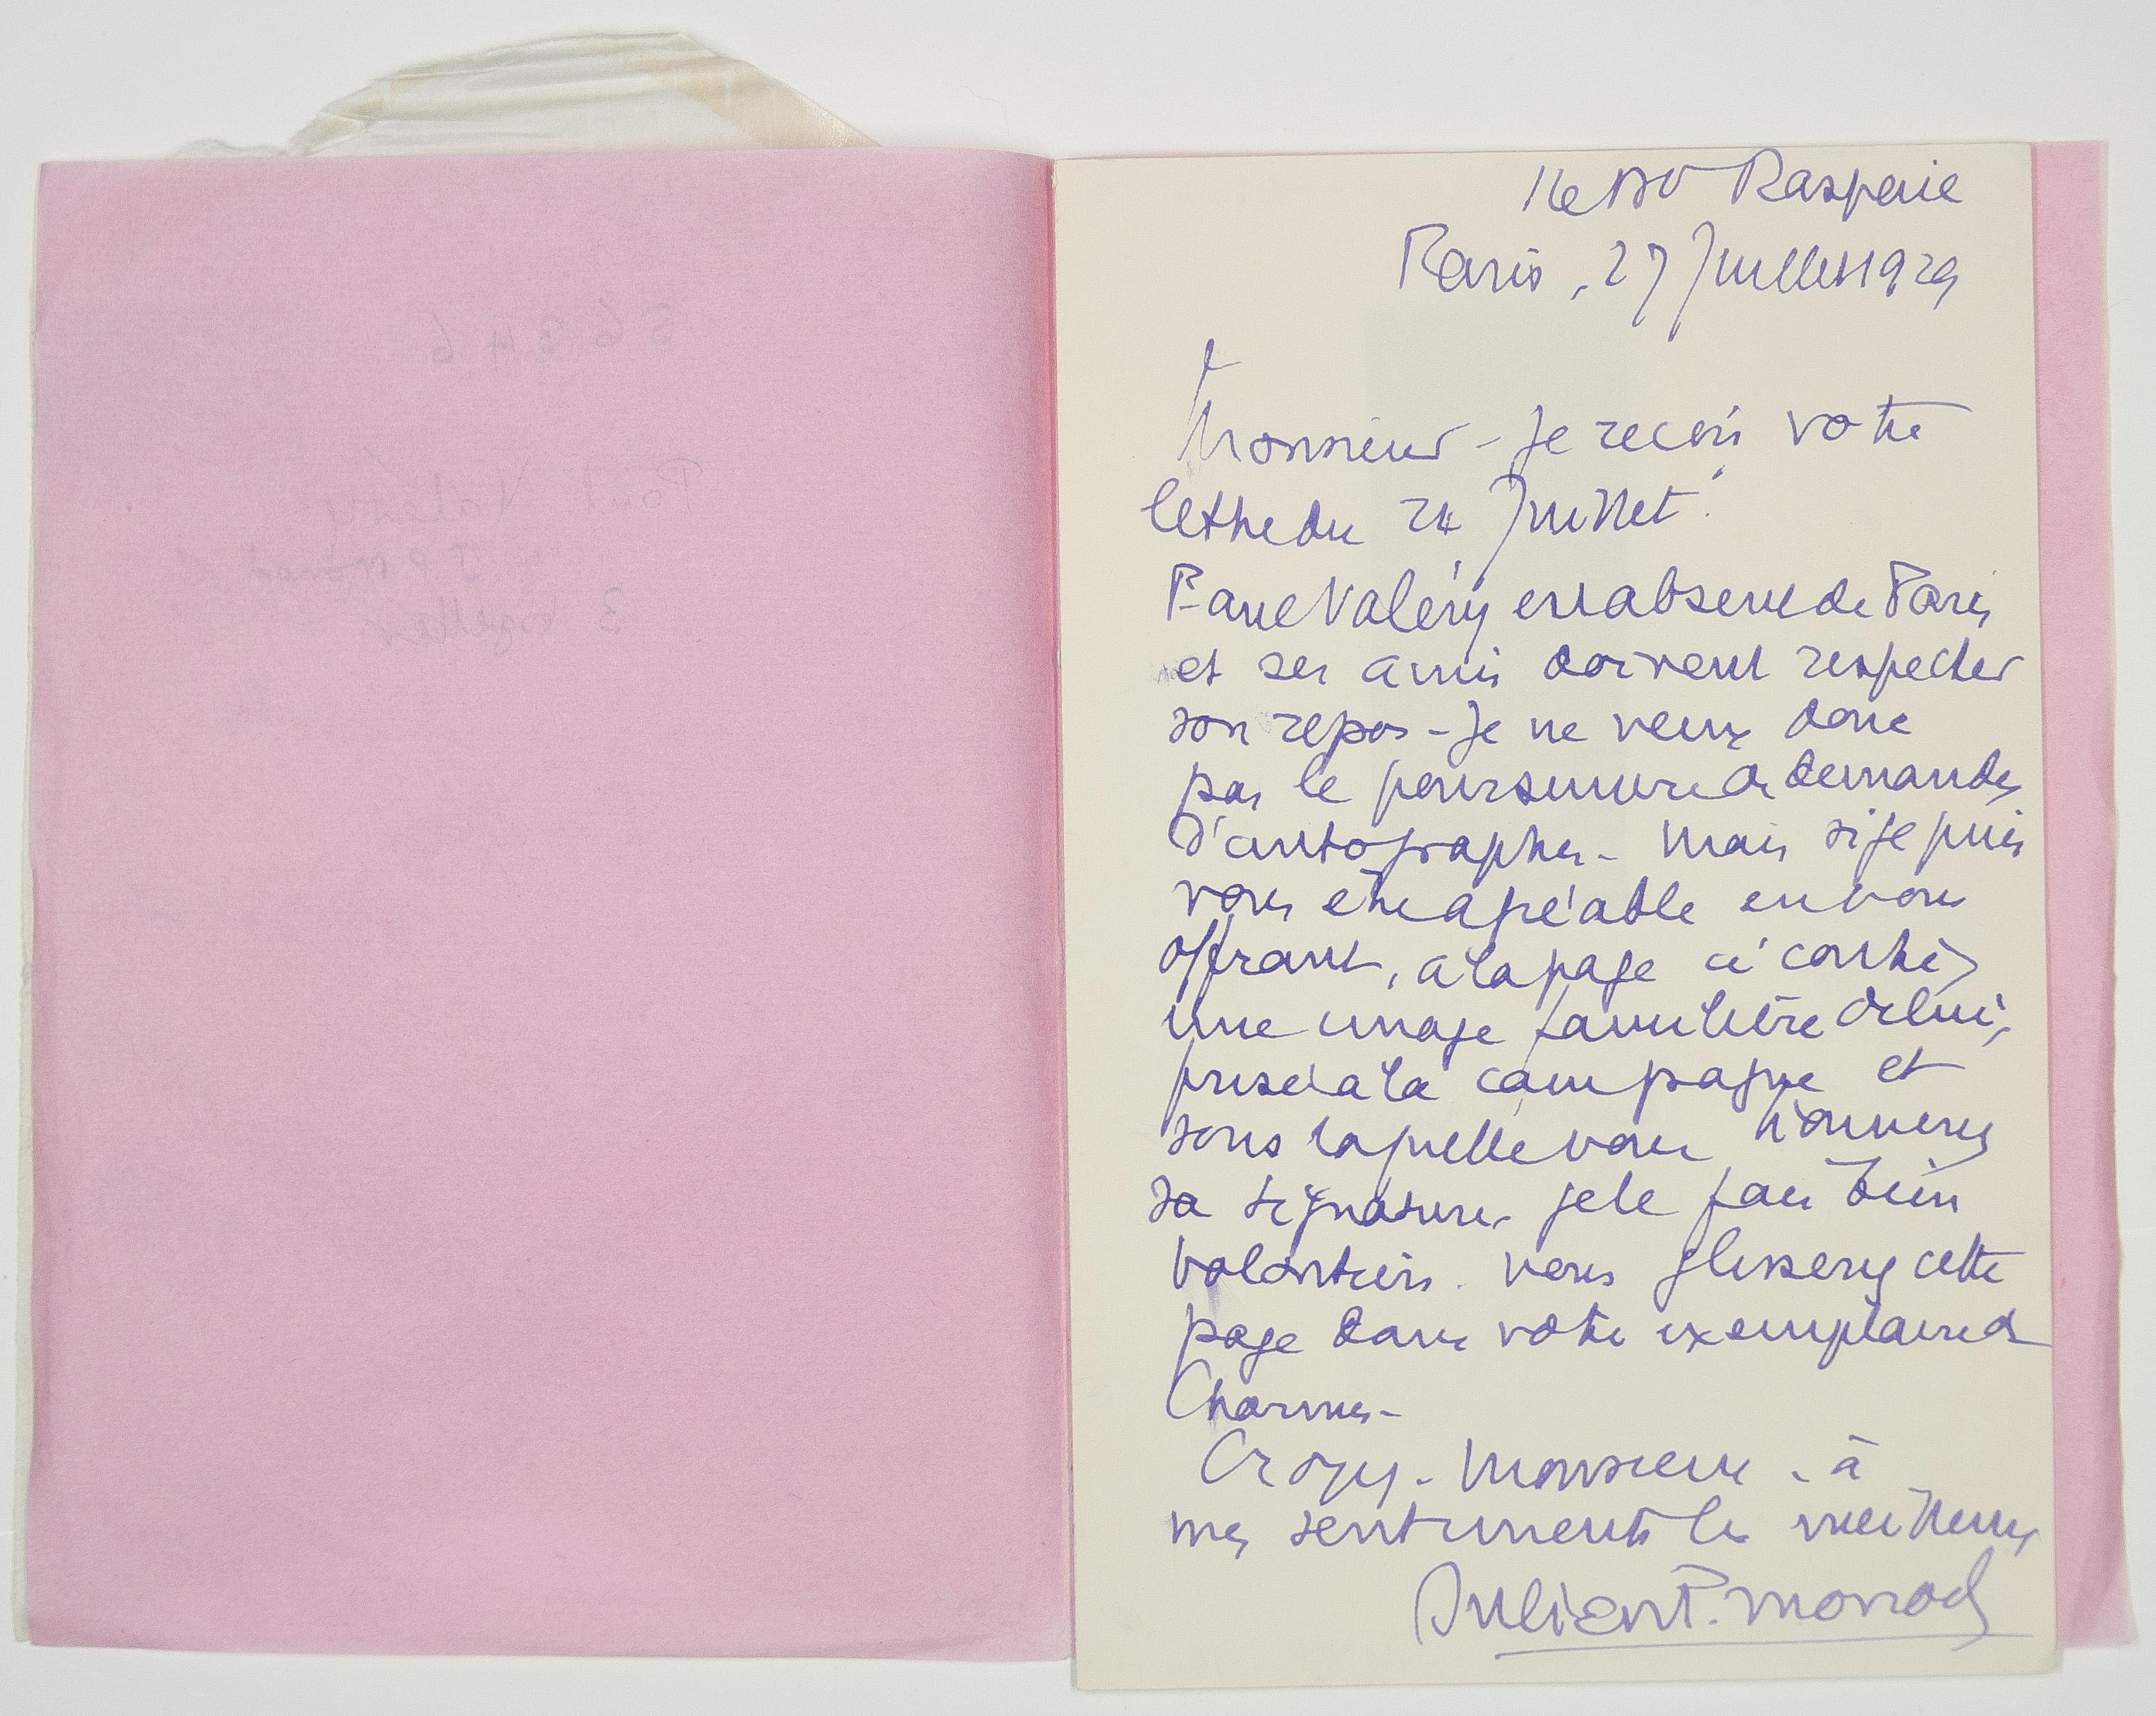 56346
Paul Valéry
J P Monod
3 together
16 Bd Raspail
Paris, 27 Juillet 1929
Monsieur - Je reçois votre
lettre du 24 Juillet.
Paul Valéry est absent de Paris
et ses amis doivent respecter
son repos - Je ne veux donc
pas le poursuivre de demandes
d'autographes - mais si je puis
vous être agréable en vous
offrant, à la page ci contre,
une image familière de lui,
prise à la campagne et
sous laquelle vous trouverez
sa signature, je le fais bien
volontiers. Vous glisserez cette
page dans votre exemplaire de
Charmes -
Croyez - Monsieur - à
mes sentiments les meilleurs
Julien P. Monod